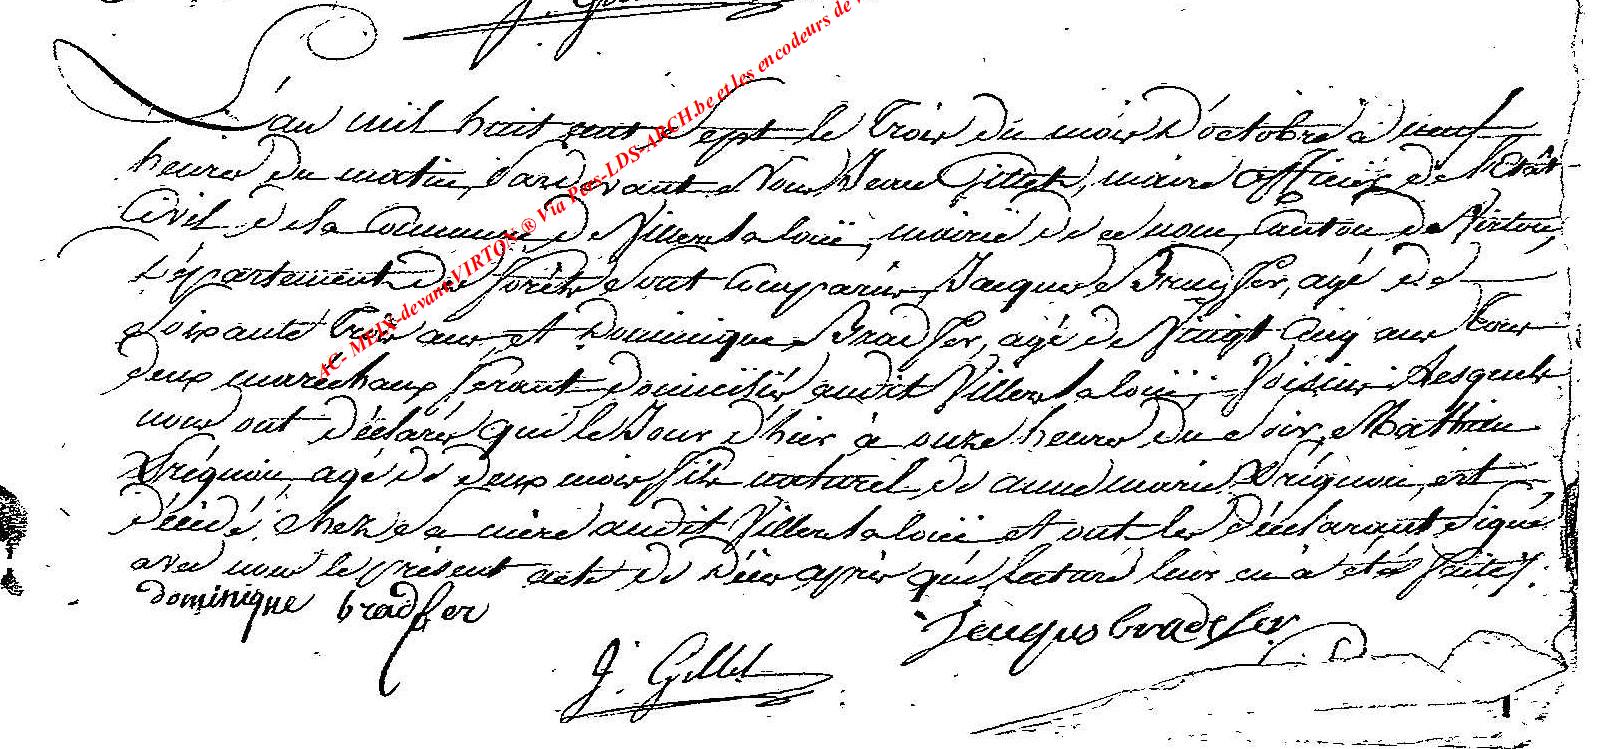 L'an mil huit cent sept le Trois du mois D'octobre à neuf
heures du matin, Pardevant Nous Gillet, maire officier de L'Etât
Civil de la Commune de Villers la loüe, mairie de ce nom, Canton de Virton,
Département de forêts sont Comparus, Jacques Bradfer, agé de
soixante Trois ans, et Dominique Bradfer, agé de Vingt Cinq ans tous
deux maréchaux ferant domiciliés audit Villers la loüe, Voisins, Lesquels
nous ont déclaré que le Jour d'hier à onze heures du soir, Mathieu
Trégnou, agé de deux mois fils naturel de anne marie Trégnou, est
décédé chez sa mère audit Villers la loüe et ont les déclarant signé
avec nous le présent acte de Décès après que lecture leur en a été faite.
dominique bradfer
Jacques bradefer
J. Gillet
AC- MEIX-devant-VIRTON ® Via Pres-LDS-ARCH.be et les encodeurs de